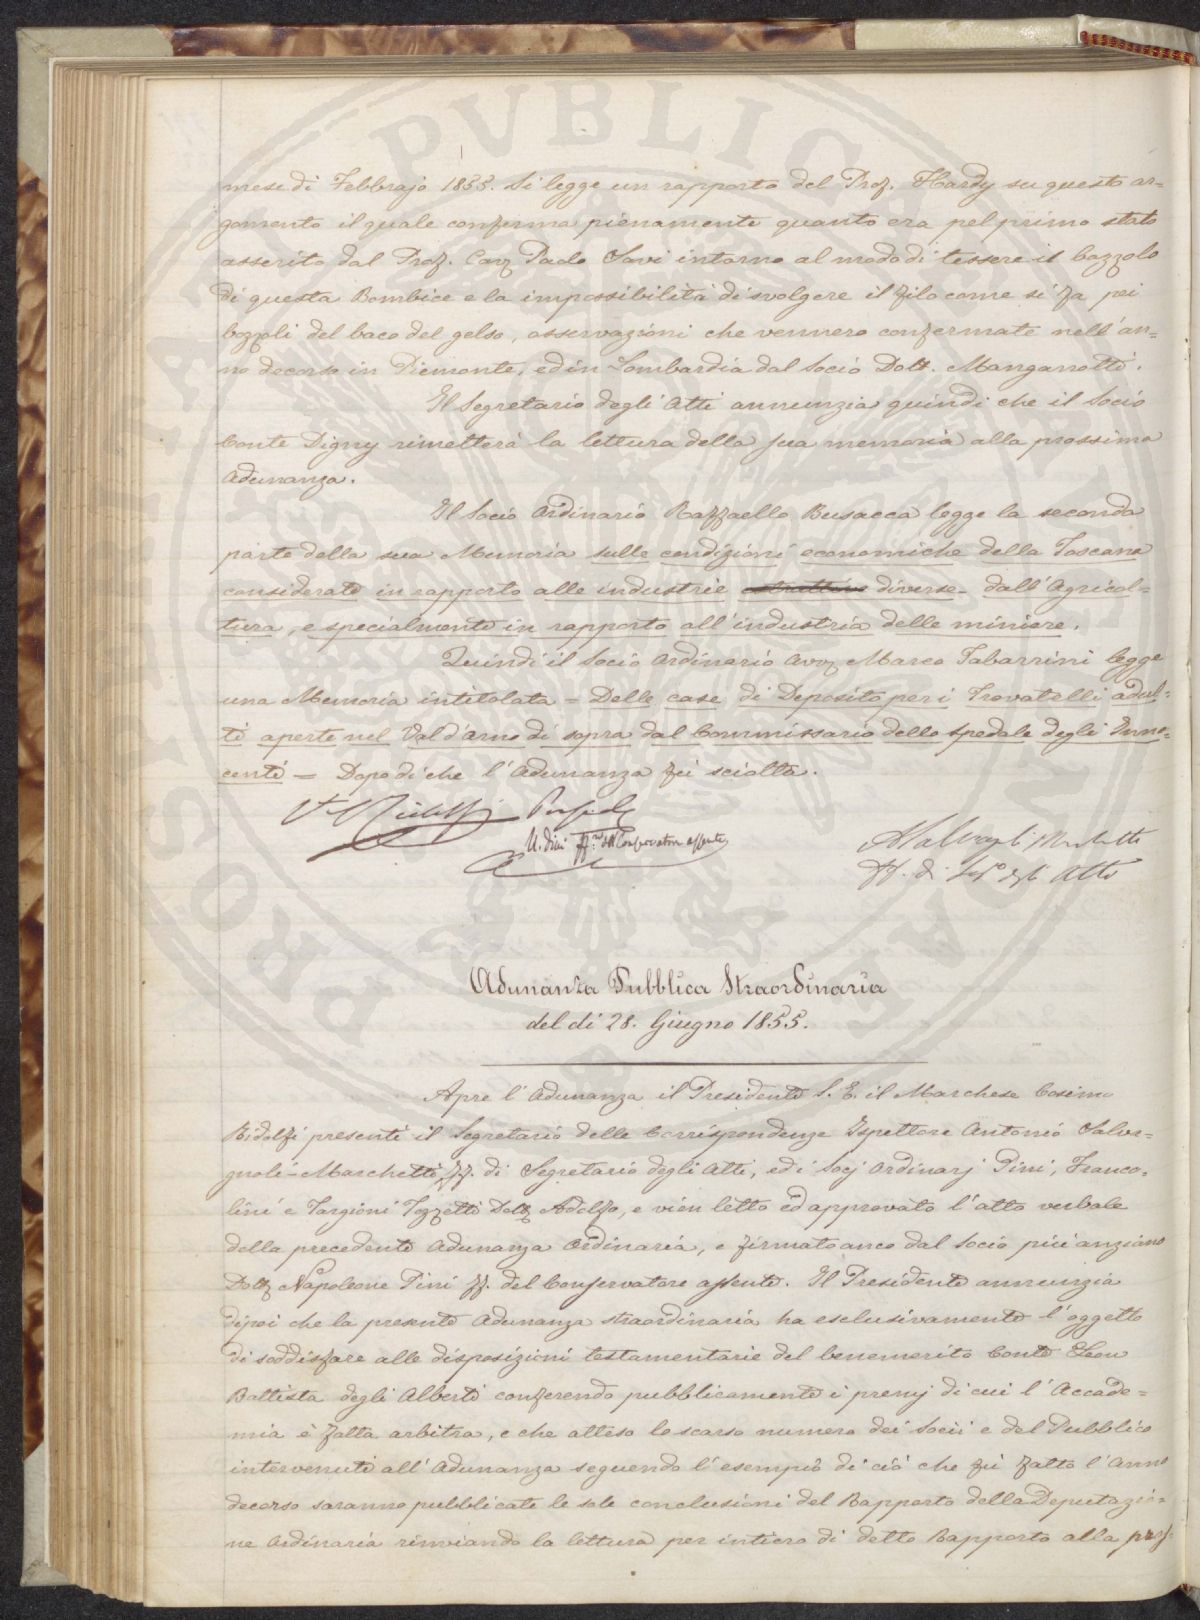 mese di Febbrajo 1855. Si legge un rapporto del Prof. Hardy su questo ar=
gomento il quale conferma pienamente quanto era pel primo stato
asserito dal Prof. Cav. Paolo Savi intorno al modo di tessere il bozzolo
di questa Bombice e la impossibilità di svolgere il filo come si fa pei
bozzoli del baco del gelso, osservazioni che vennero confermate nell'an=
no decorso in Piemonte, ed in Lombardia dal Socio Dott. Manganotti.
Il Segretario degli Atti annunzia quindi che il Socio
Conte Digny rimetterà la lettura della sua memoria alla prossima
Adunanza.
Il Socio Ordinario Raffaello Busacca legge la seconda
parte della sua Memoria sulle condizioni economiche della Toscana
considerate in rapporto alle industrie estrattive diverse dall'Agricol=
tura, e specialmente in rapporto all'industria delle miniere.
Quindi il Socio Ordinario Avv. Marco Tabarrini legge
una Memoria intitolata = Delle case di Deposito per i Trovatelli adul=
ti aperte nel Val d'Arno di sopra dal Commissario dello Spedale degli Inno=
centi = Dopo di che l'Adunanza fu sciolta.
V. C. Ridolfi Presid.
N. Pini ff. del Conservatore assente
A Salvagnoli Marchetti
ff. di Seg. degli Atti
Adunanza Pubblica Straordinaria
del dì 28. Giugno 1855.
Apre l'Adunanza il Presidente S. E. il Marchese Cosimo
Ridolfi presenti il Segretario delle Corrispondenze Ispettore Antonio Salva=
gnoli-Marchetti ff. di Segretario degli Atti, ed i Socj Ordinarj Pini, Franco=
lini e Targioni Tozzetti Dott. Adolfo, e vien letto ed approvato l'atto verbale
della precedente Adunanza Ordinaria, e firmato anco dal Socio più anziano
Dott. Napoleone Pini ff. del Conservatore assente. Il Presidente annunzia
dipoi che la presente Adunanza straordinaria ha esclusivamente l'oggetto
di soddisfare alle disposizioni testamentarie del benemerito Conte Leon
Battista degli Alberti conferendo pubblicamente i premj di cui l'Accade=
mia è fatta arbitra, e che atteso lo scarso numero dei Socii e del Pubblico
intervenuti all'Adunanza seguendo l'esempio di ciò che fu fatto l'anno
decorso saranno pubblicate le sole conclusioni del Rapporto della Deputazio=
ne Ordinaria rinviando la lettura per intiero di detto Rapporto alla pros=